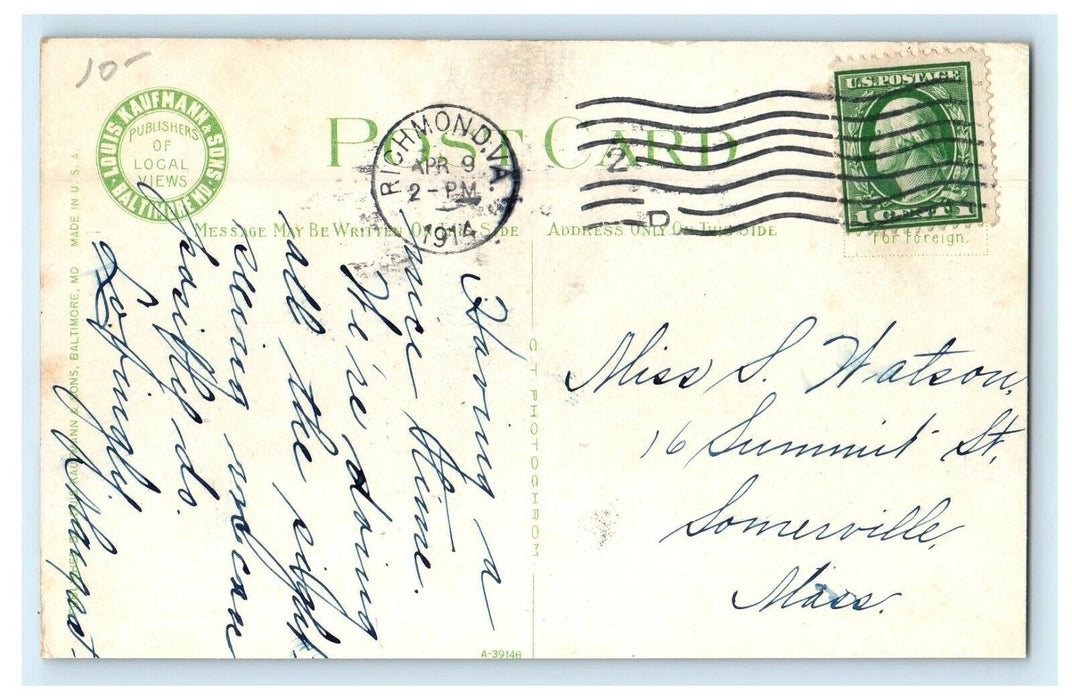 10-
LOUIS KAUFMANN & SONS.
BALTIMORE MD.
PUBLISHERS
OF
LOCAL
VIEWS
POST CARD
RICHMOND, VA.
APR 9
2 - PM
1914
2
D
U.S. POSTAGE
1 CENT 1
MESSAGE MAY BE WRITTEN ON THIS SIDE
ADDRESS ONLY ON THIS SIDE
For Foreign.
Having a
nice time.
We're doing
all the sight
seeing we can
possibly do.
Lovingly
Miss S. Watson,
16 Summit St.
Somerville,
Mass.
KAUFMANN & SONS, BALTIMORE, MD MADE IN U. S. A.
PHOTOCHROM
A-39148